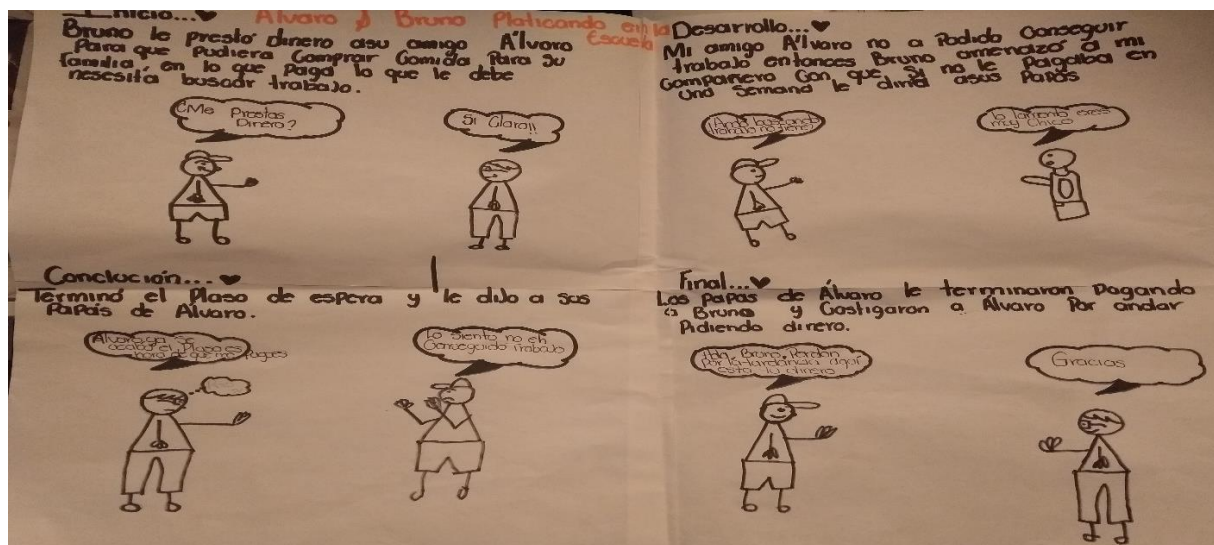 Inicio...♥
Alvaro y Bruno Platicando en la
Escuela
Bruno le prestó dinero asu amigo Álvaro
Para que Pudiera Comprar Comida Para su
familia, en lo que Paga lo que le debe
nesesita busadr trabajo.
¿Me Prestas
Dinero?
Si Claro!!
Desarrollo...♥
Mi amigo Álvaro no a Podido Conseguir
trabajo entonces Bruno amenazó a mi
Compañero Con que si no le Pagaba en
una semana le diria asus Papás
Ando buscando
trabajo no tiene?
lo lamento eres
muy Chico
Conclución...♥
Terminó el Plaso de espera y le dijo a sus
PaPás de Álvaro.
Alvaro ya se
acabo el Plaso es
hora de que me Pagues
Lo siento no eh
Conseguido trabajo
Final...♥
Los PaPas de Álvaro le terminaron Pagando
a Bruno y Castigaron a Álvaro Por andar
Pidiendo dinero.
Hola, Bruno, Perdon
Por la tardancia aqui
esta tu dinero
Gracias